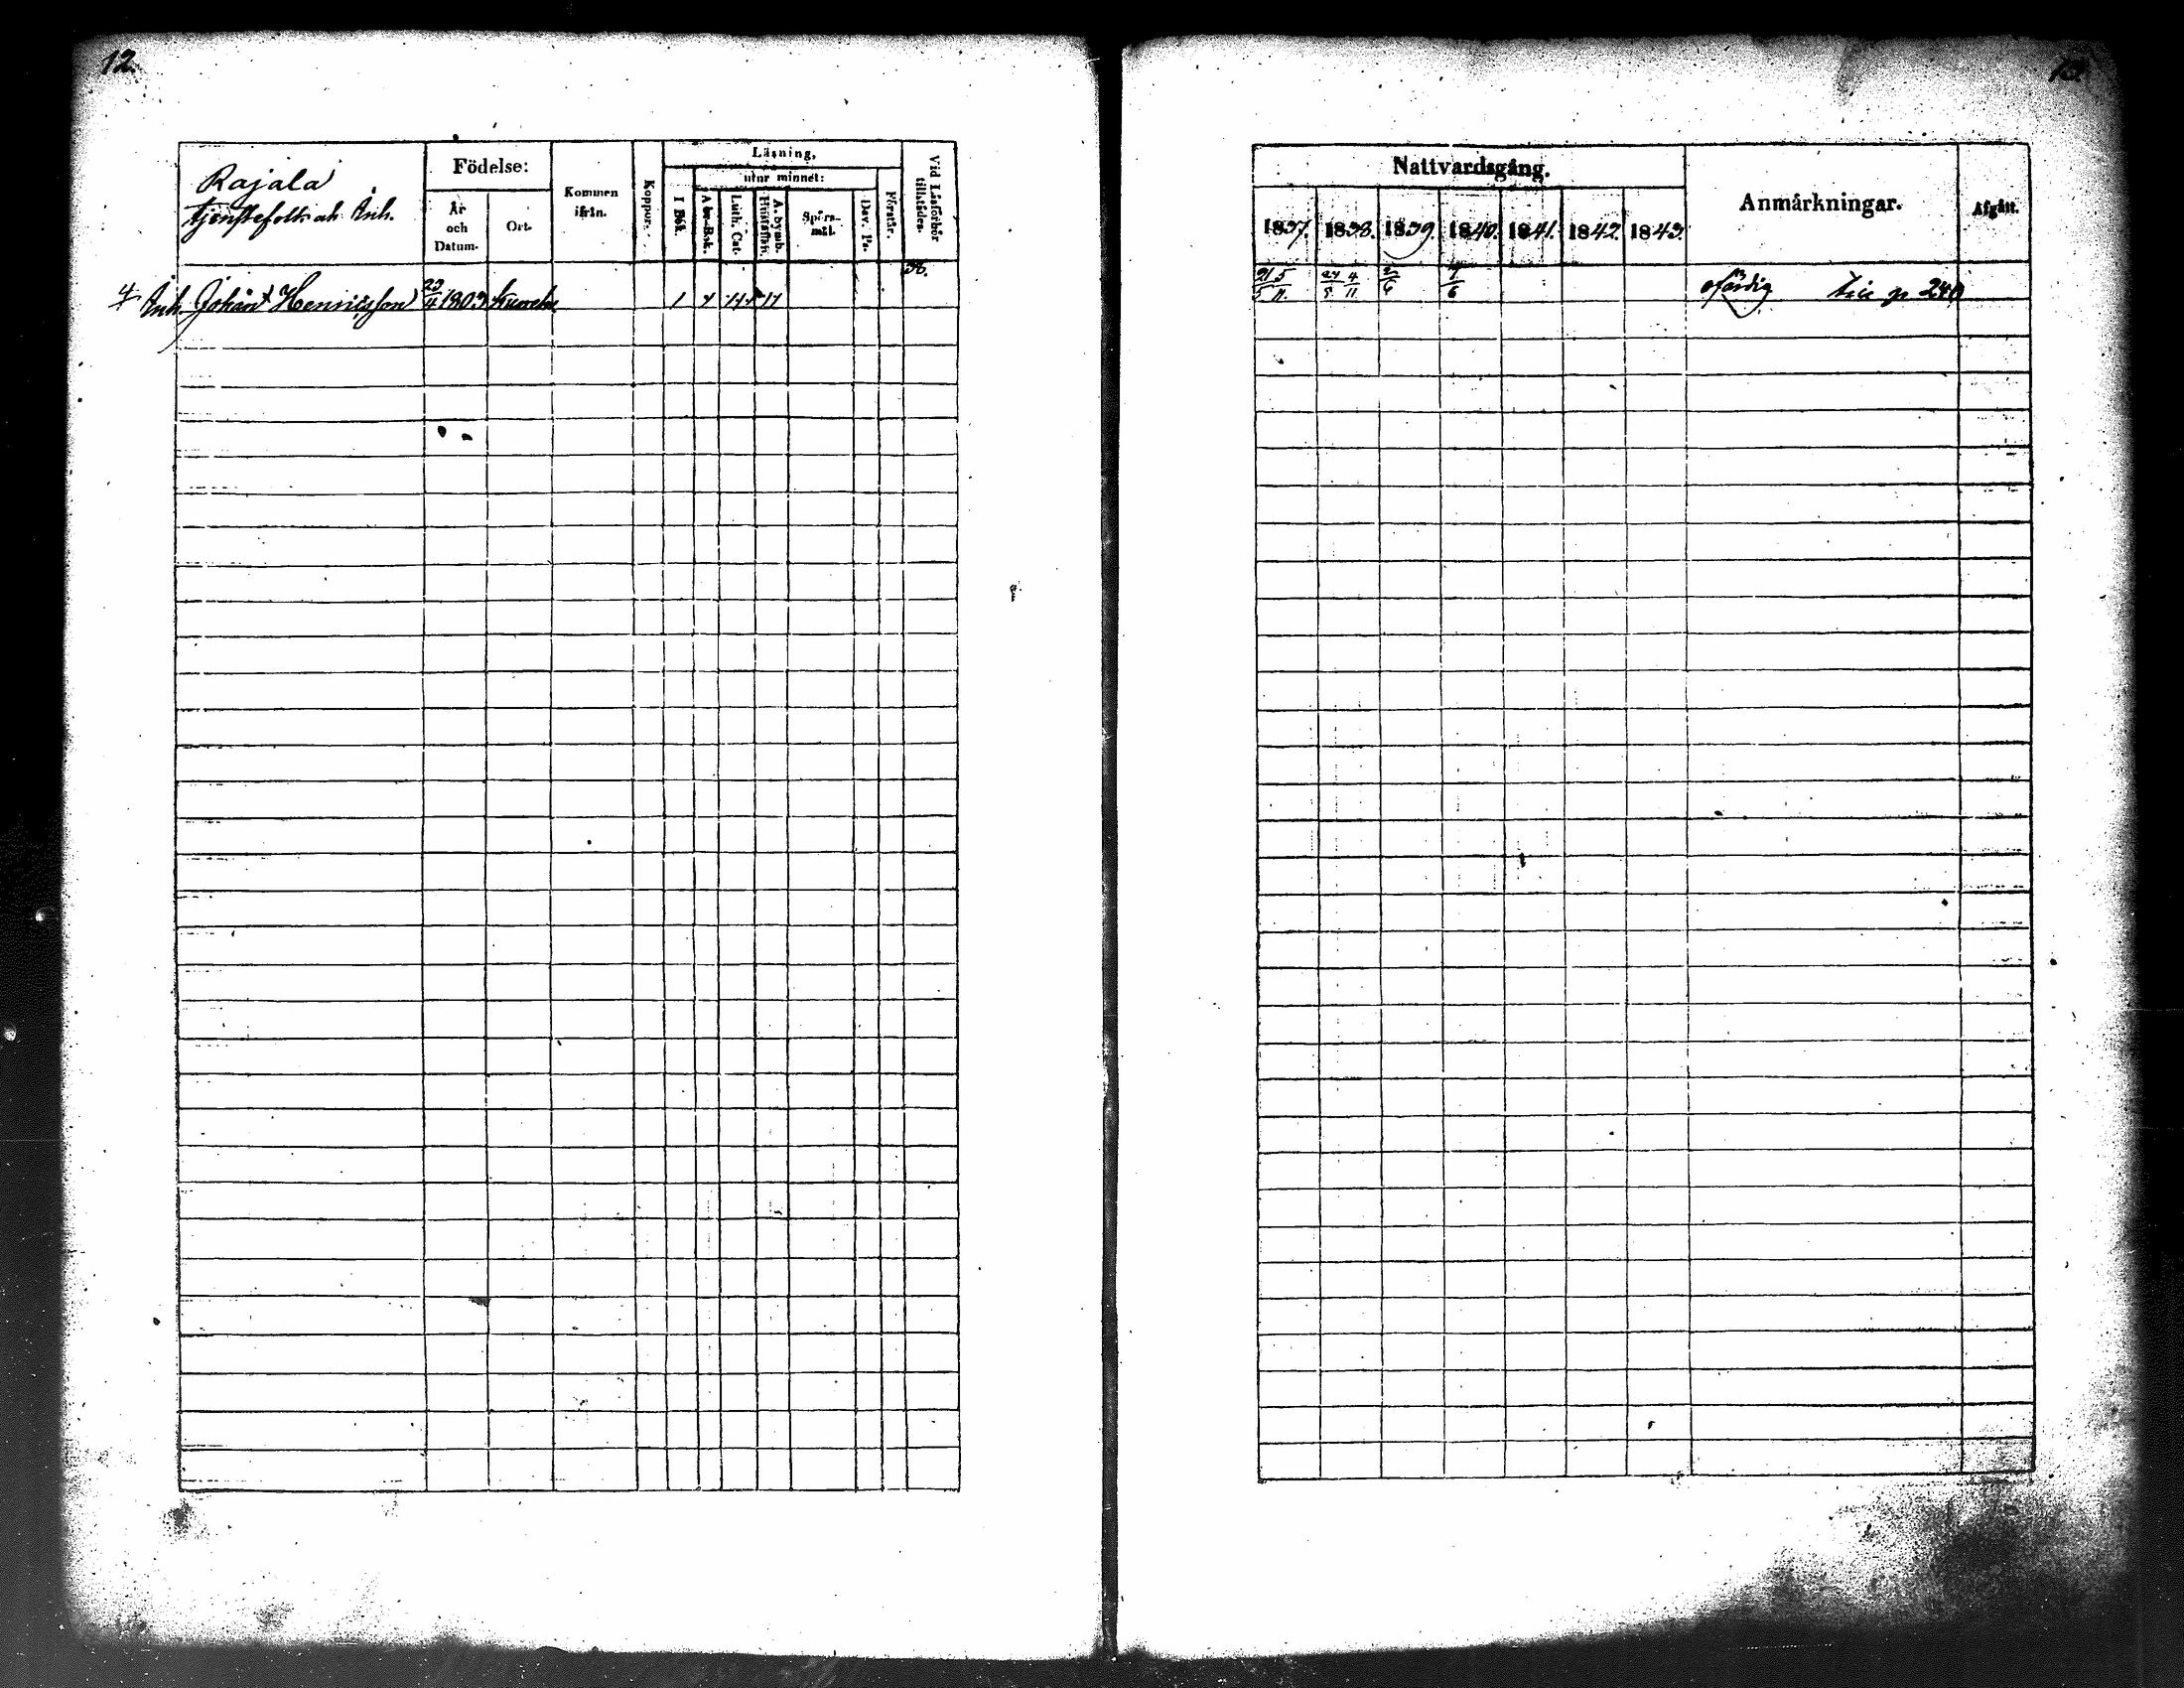 12.
Rajala
tjenstefolk och Inh.
Födelse:
År
och
Datum.
Ort.
Kommen
ifrån.
Koppor.
Läsning,
utur minnet:
I Bok.
Abc-Bok.
Luth. Cat.
A. Symb.
Hustaflan.
Spörs-
mål.
Dav. Ps.
Förstår.
Vid Läsförhör
tillstädes.
38.
Inh. Johan Henricsson 23/4 1803
Nattvardsgång.
1837. 1838. 1839. 1840. 1841. 1842. 1843.
Anmärkningar.
Afgått.
21/5 5/11. 24/5 4/11 2/6 7/6 ofärdig 240